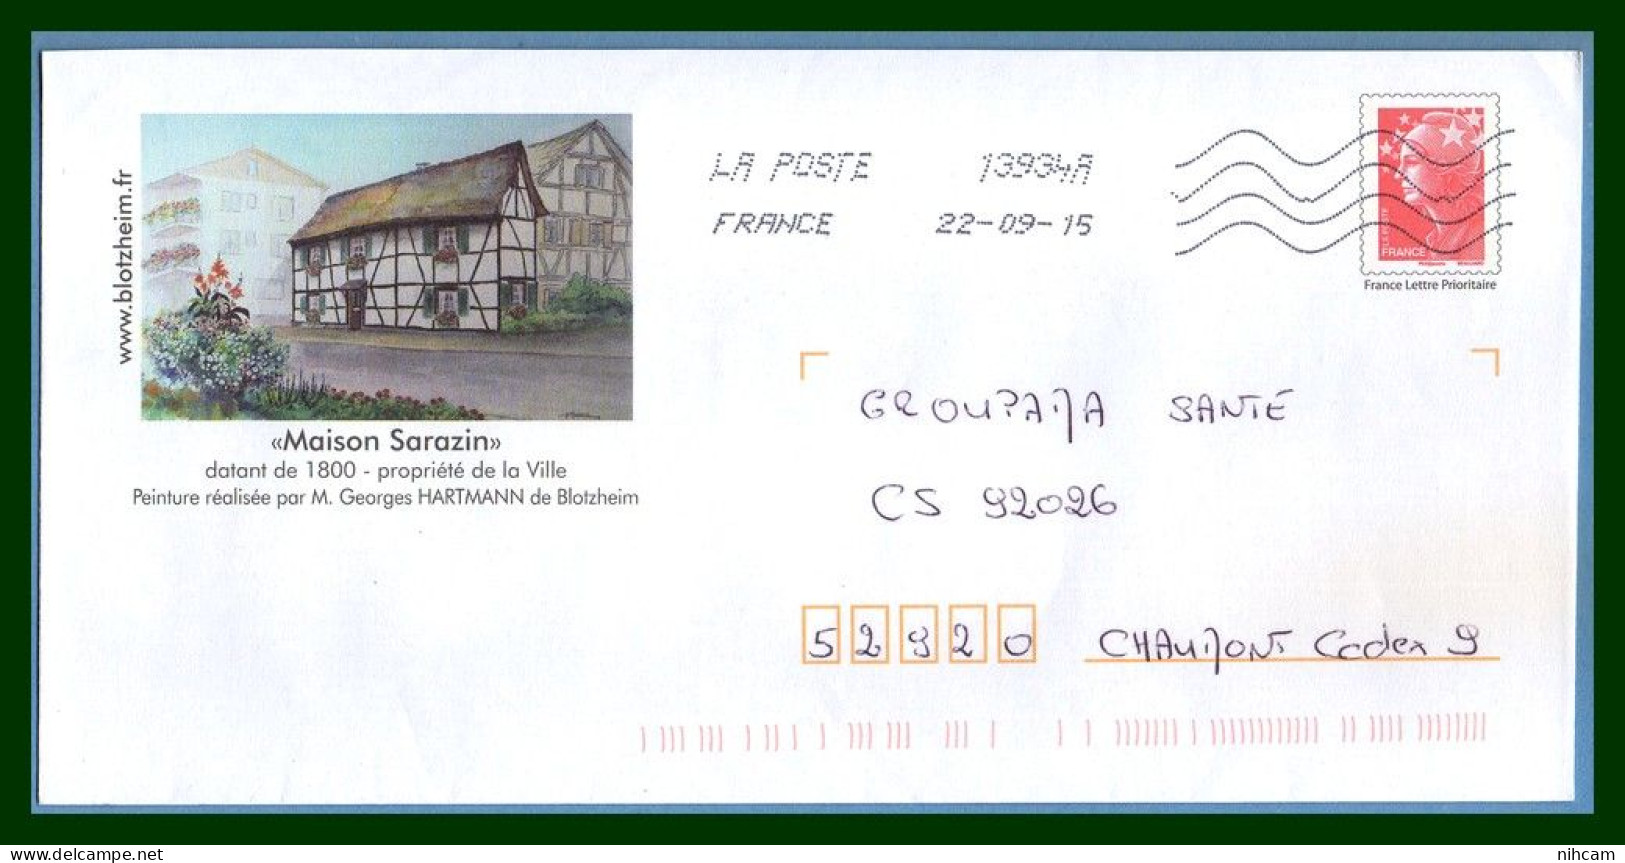 www.blotzheim.fr
«Maison Sarazin»
datant de 1800 - propriété de la Ville
Peinture réalisée par M. Georges HARTMANN de Blotzheim
LA POSTE 13934A
FRANCE 22-09-15
LA POSTE
FRANCE
France Lettre Prioritaire
GROUPAMA SANTÉ
CS 92026
52920 CHAUMONT Cedex 9
delcampe.net
nihcam